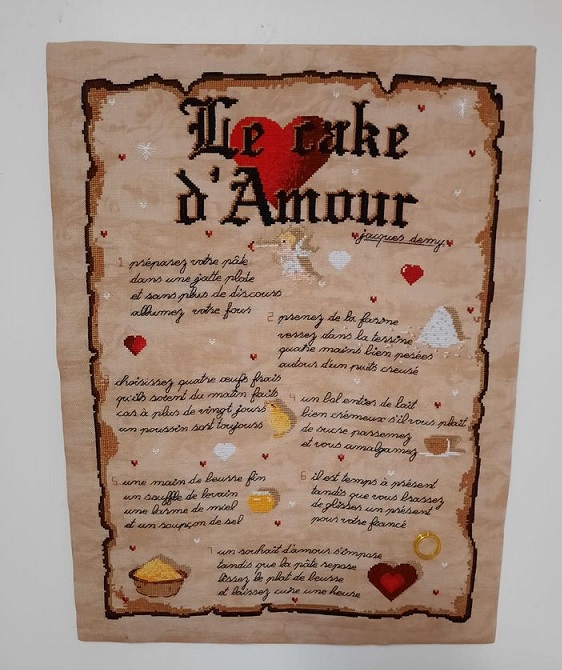 Le cake
d'Amour
jacques demy
1 préparez votre pâte
dans une jatte plate
et sans plus de discours
allumez votre four
2 prenez de la farine
versez dans la terrine
quatre mains bien pesées
autour d'un puits creusé
choisissez quatre œufs frais
qu'ils soient du matin faits
car à plus de vingt jours
un poussin sort toujours
4 un bol entier de lait
bien crémeux s'il vous plait
de sucre parsemez
et vous amalgamez
5 une main de beurre fin
un souffle de levain
une larme de miel
et un soupçon de sel
6 il est temps à présent
tandis que vous brassez
de glisser un présent
pour votre fiancé
7 un souhait d'amour s'impose
tandis que la pâte repose
lissez le plat de beurre
et laissez cuire une heure